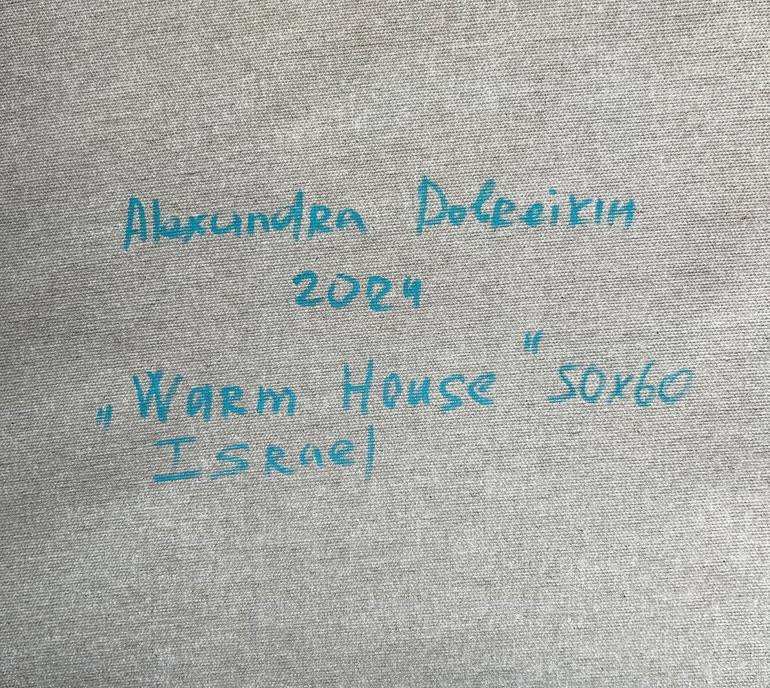 Alexandra Dolreikin
2024
„Warm House" 50x60
Israel